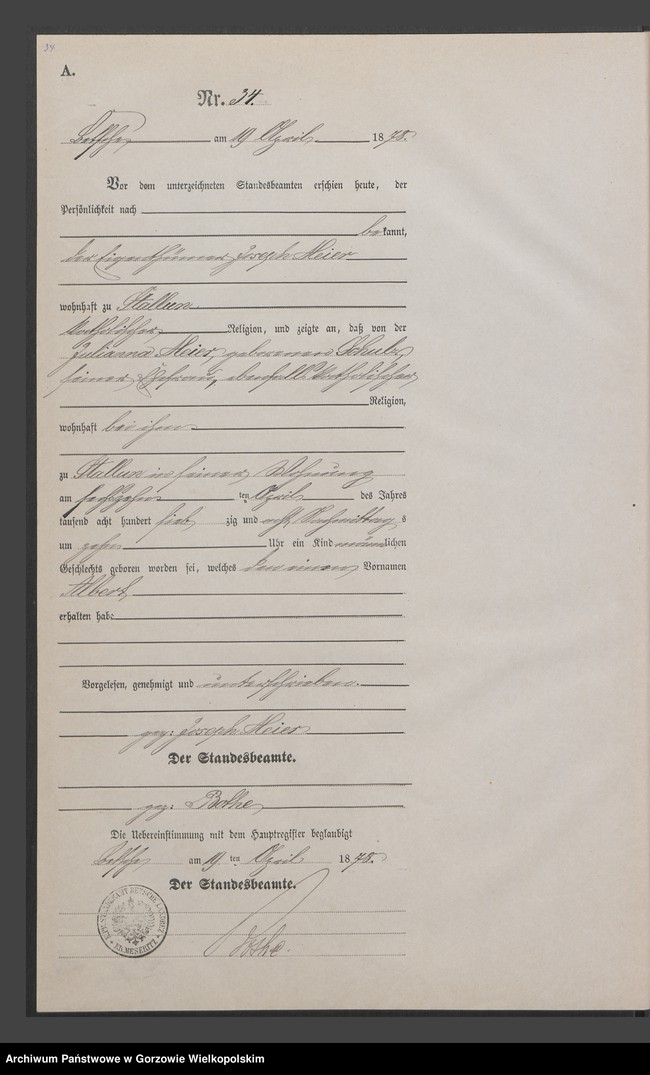 34
A.
Nr. 34.
Betsche am 19 April 1878.
Vor dem unterzeichneten Standesbeamten erschien heute, der
Persönlichkeit nach
bekannt,
der Eigenthümer Joseph Meier
wohnhaft zu Stallun
katholischer Religion, und zeigte an, daß von der
Julianna Meier, geborenen Schulz,
seiner Ehefrau, ebenfalls katholischer
Religion,
wohnhaft bei ihm
zu Stallun in seiner Wohnung
am sechszehn ten April des Jahres
tausend acht hundert sieb zig und acht Nachmittag s
um zehn Uhr ein Kind männlichen
Geschlechts geboren worden sei, welches den einen Vornamen
Albert
erhalten habe
Vorgelesen, genehmigt und unterschrieben.
gez: Joseph Meier
Der Standesbeamte.
gez: Bothe
Die Uebereinstimmung mit dem Hauptregister beglaubigt
Betsche am 19 ten April 1878.
Der Standesbeamte.
Bothe.
KR. MESERITZ
Archiwum Państwowe w Gorzowie Wielkopolskim